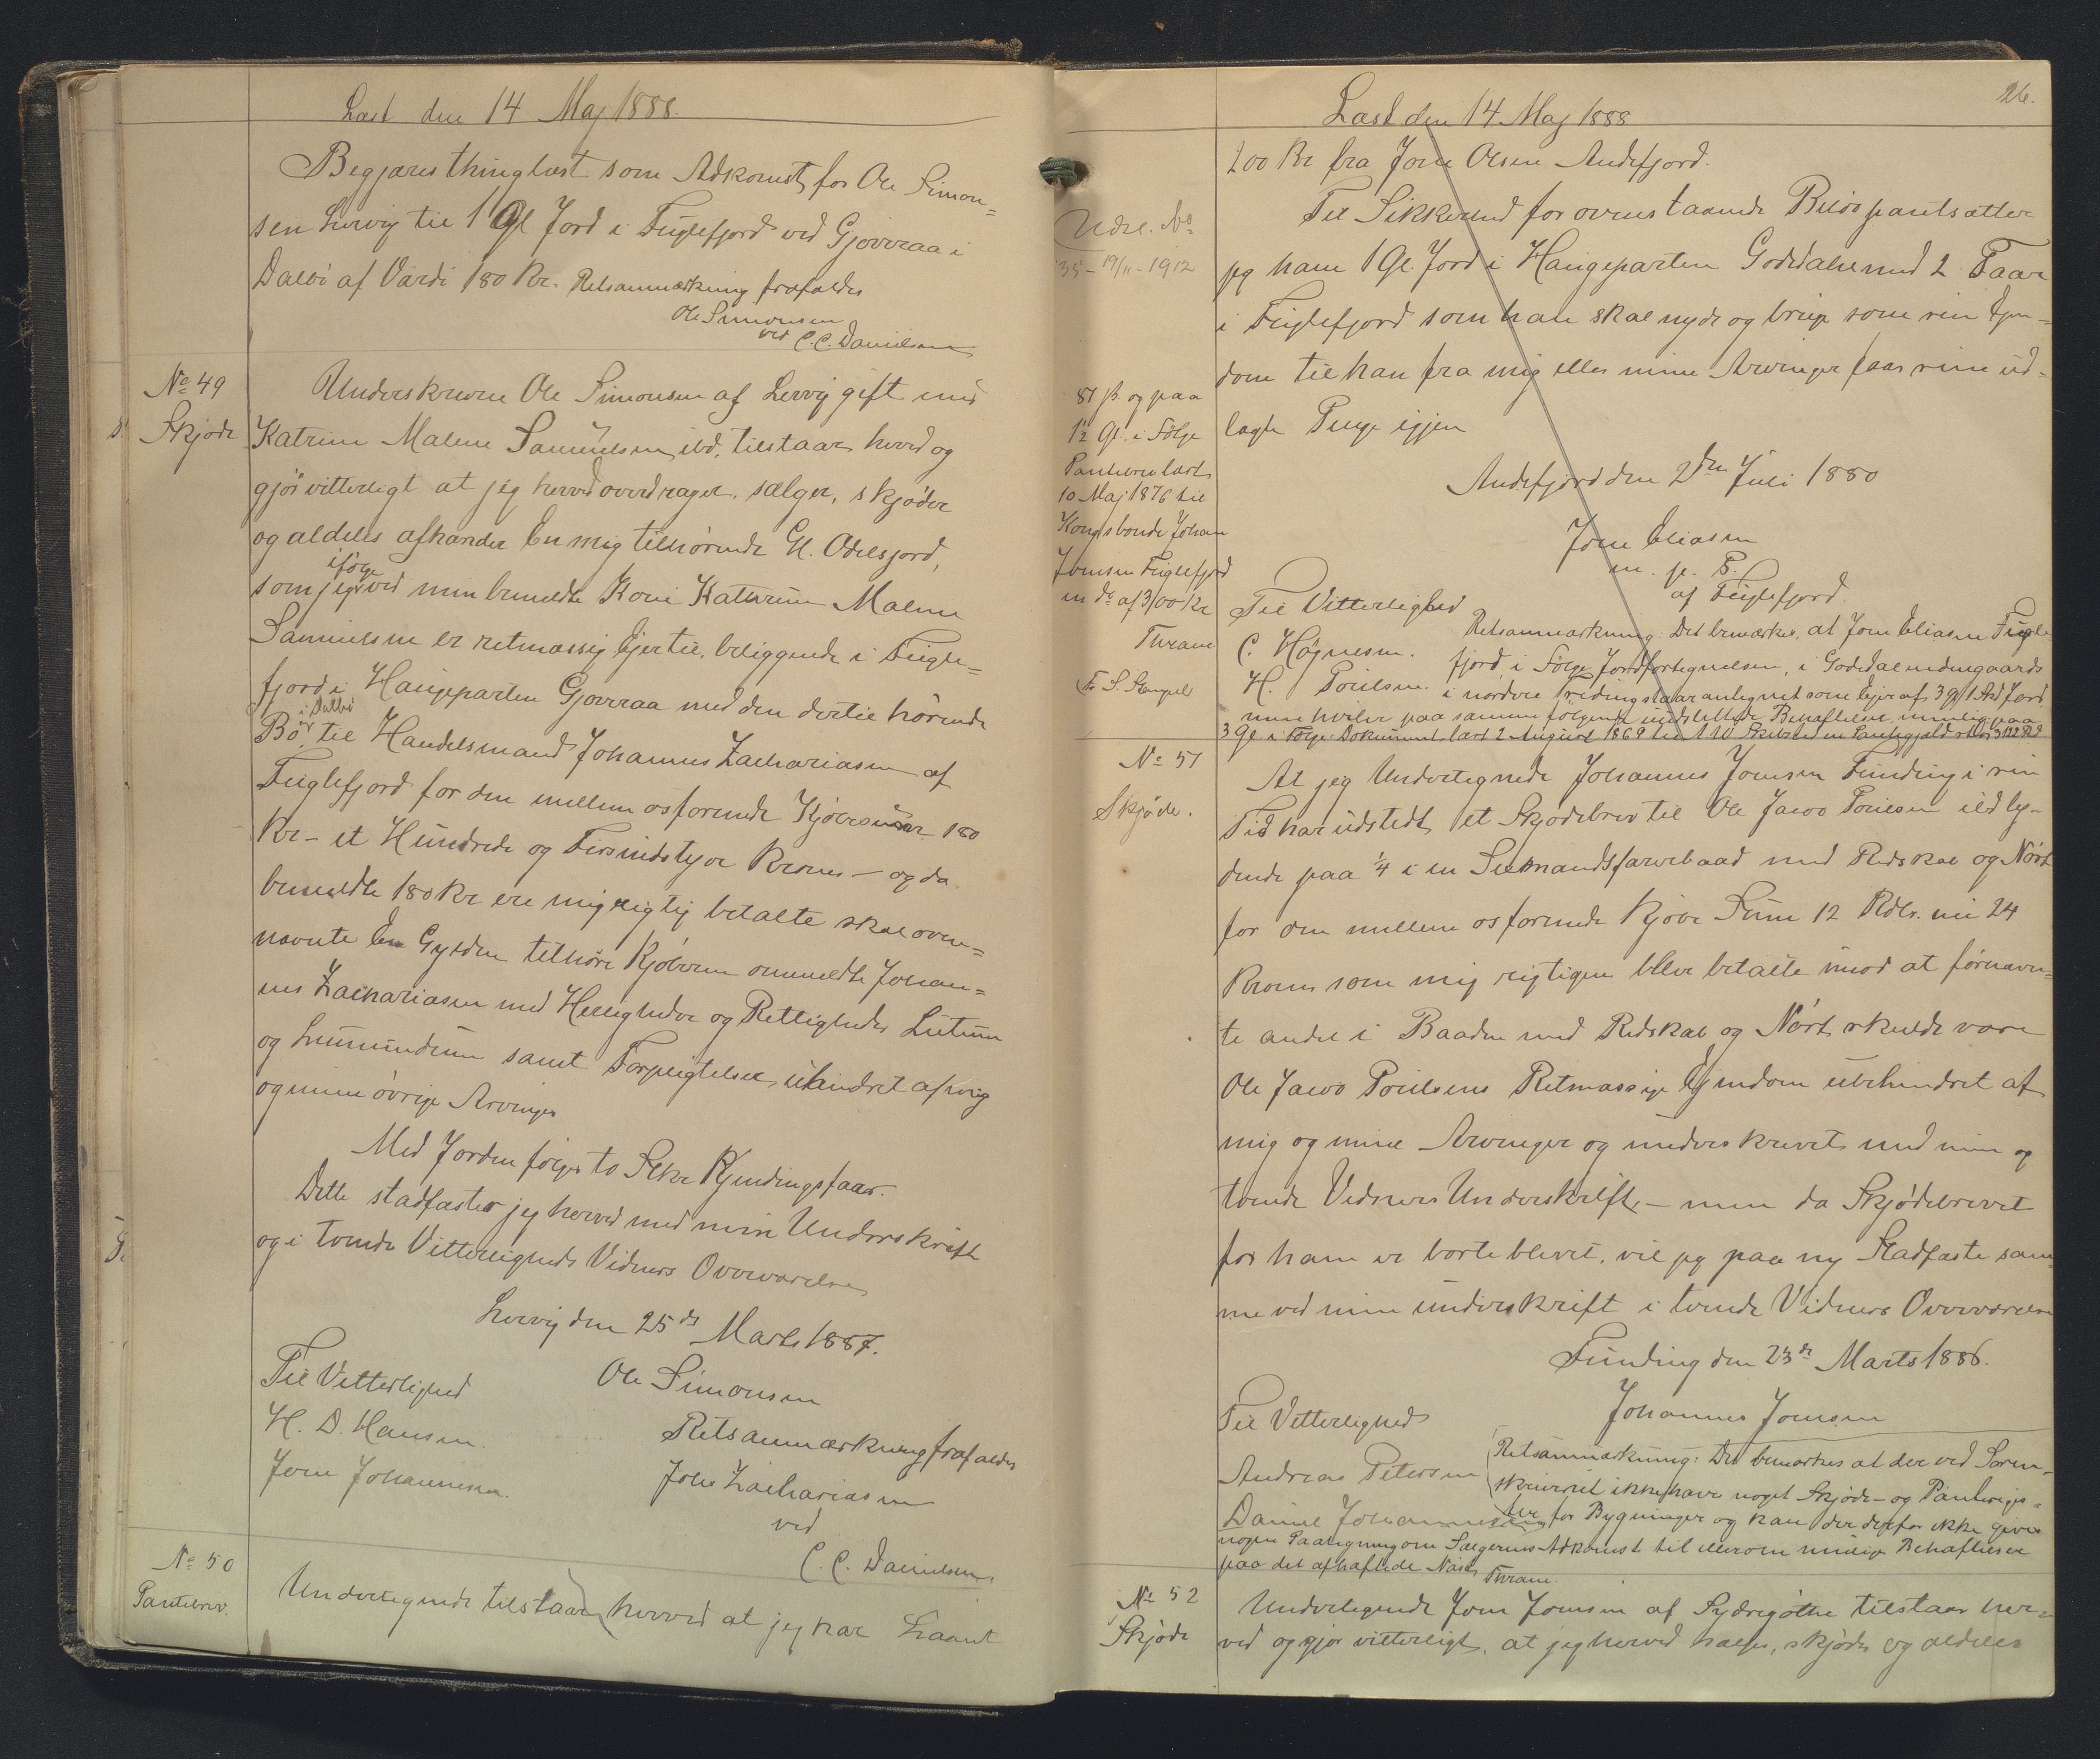 Læst den 14 Maj 1888.
Begjæres thinglæst som Adkomst for Ole Simon=
sen Lervig til 1 Gl Jord i Fuglefjord ved Gjovraa i
Dalbö af Værdi 180 Kr. Retsanmærkning frafaldes
Ole Simonsen
ved C. C. Danielsen
No 49
Skjöde
Underskrevne Ole Simonsen af Lervig gift med
Katrine Malene Samuelsen ibd, tilstaar herved og
gjör vitterligt at jeg herved overdrager, sælger, skjöder
og aldeles afhænder En mig tilhörende Gl. Odelsjord,
ifölge
som jeg ved min bemeldte Kone Kathrine Malene
Samuelsen er retmæssig Ejer til, beliggende i Fugle=
fjord i Haugeparten Gjovraa med den dertil hörende
i Dalbö
Bö, til Handelsmand Johannes Zachariasen af
Fuglefjord for den mellem os forenede Kjöbesum 180
Kr - et Hundrede og Firsindstyve Kroner - og da
bemeldte 180 Kr ere mig rigtig betalte skal oven=
nævnte En Gylden tilhöre Kjöberen ommeldte Johan=
nes Zachariasen med Herligheder og Rettigheder Lutum
og Lunnundum samt Forpligtelser uhindret af mig
og mine övrige Arvinger
Med Jorden fölger to Stkr Kyndingsfaar.
Dette stadfæster jeg herved med min Underskrift
og i tvende Vitterligheds Vidners Overværelse
Lervig den 25de Marts 1887.
Til Vitterlighed
Ole Simonsen
H. D. Hansen
Retsanmærkning frafaldes
Joen Johannesen.
Johs Zachariasen
ved
C. C. Danielsen.
No 50
Pantebrev.
Undertegnede tilstaar herved at jeg har Laant
26.
Læst den 14 Maj 1888
200 Kr fra Jone Olsen Andefjord.
Til Sikkerhed for ovenstaaende Belöb pantsætter
jeg ham 1 Gl. Jord i Haugeparten Godedalen med 2 Faar
i Fuglefjord som han skal nyde og bruge som sin Ejen=
dom til han fra mig eller mine Arvinger faar sine ud=
lagte Penge igjen
Andefjord den 2den Juli 1880
Joen Eliasen
m. p. P.
af Fuglefjord.
Udsl. No
35 - 19/11 - 1912
87 ß og paa
1½ Gl. i Fölge
Pantebrev læst
10 Maj 1876 til
Kongsbonde Johan
Joensen Fuglefjord
en do af 3/00 Kr
Thrane
Fr S. Stempel
Til Vitterlighed
C. Højnesen.
H. Poulsen.
Retsanmærkning: Det bemærkes, at Joen Eliasen Fugle
fjord, i Fölge Jordfortegnelsen, i Godedal
i nordere antegnet som Ejer af 3 Gl 1 Skd Jord
men hviler paa samme fölgende uudslettede Behæftelser nemlig paa
3 Gl. i Fölge Dokument læst 2 August 1869 til
No 51
Skjöde.
At jeg Undertegnede Johannes Joensen Funding i sin
Tid har udstedt et Skjödebrev til Ole Jacob Poulsen ibd ly-
dende paa ¼ i en Seksmandsfarebaad med Redskab og Növst
for den mellem os forenede Kjöbe Sum 12 Rdlr. nu 24
Kroner som mig rigtigen blev betalte imod at fornævn=
te andel i Baaden med Redskab og Növst skulde være
Ole Jacob Poulsens Retmæssige Ejendom ubehindret af
mig og mine Arvinger og underskrevet med min og
tvende Vidners Underskrift, - men da Skjödebrevet
for ham er borteblevet, vil jeg paa ny Stadfæste sam
me ved min underskrift i tvende Vidners Overværelse
Funding den 23de Marts 1886.
Johannes Joensen
Til Vitterlighed
Andreas Petersen
Daniel Johannesen
Retsanmærkning: Det bemærkes at der ved Soren-
skriveriet ikke haves noget Skjöde- og Panteregis=
ter for Bygninger og kan der derfor ikke gives
nogen Paategning om Sælgerens Adkomst til eller om mulige Behæftelser
paa det afhændede Növst
Thrane.
No 52
Skjöde
Undertegnede Joen Joensen af Sydregöthe tilstaar her=
ved og gjör vitterligt, at jeg herved sælger, skjöder og aldeles